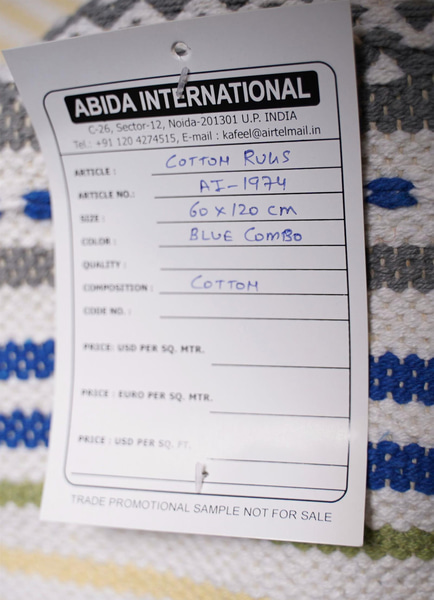 ABIDA INTERNATIONAL
C-26, Sector-12, Noida-201301 U.P. INDIA
Tel.: +91 120 4274515, E-mail : kafeel@airtelmail.in
ARTICLE : COTTOM RUGS
ARTICLE NO.: AI-1974
SIZE : 60 x 120 cm
COLOR : BLUE COMBO
QUALITY :
COMPOSITION : COTTOM
CODE NO. :
PRICE: USD PER SQ. MTR.
PRICE : EURO PER SQ. MTR.
PRICE : USD PER SQ. FT.
TRADE PROMOTIONAL SAMPLE NOT FOR SALE